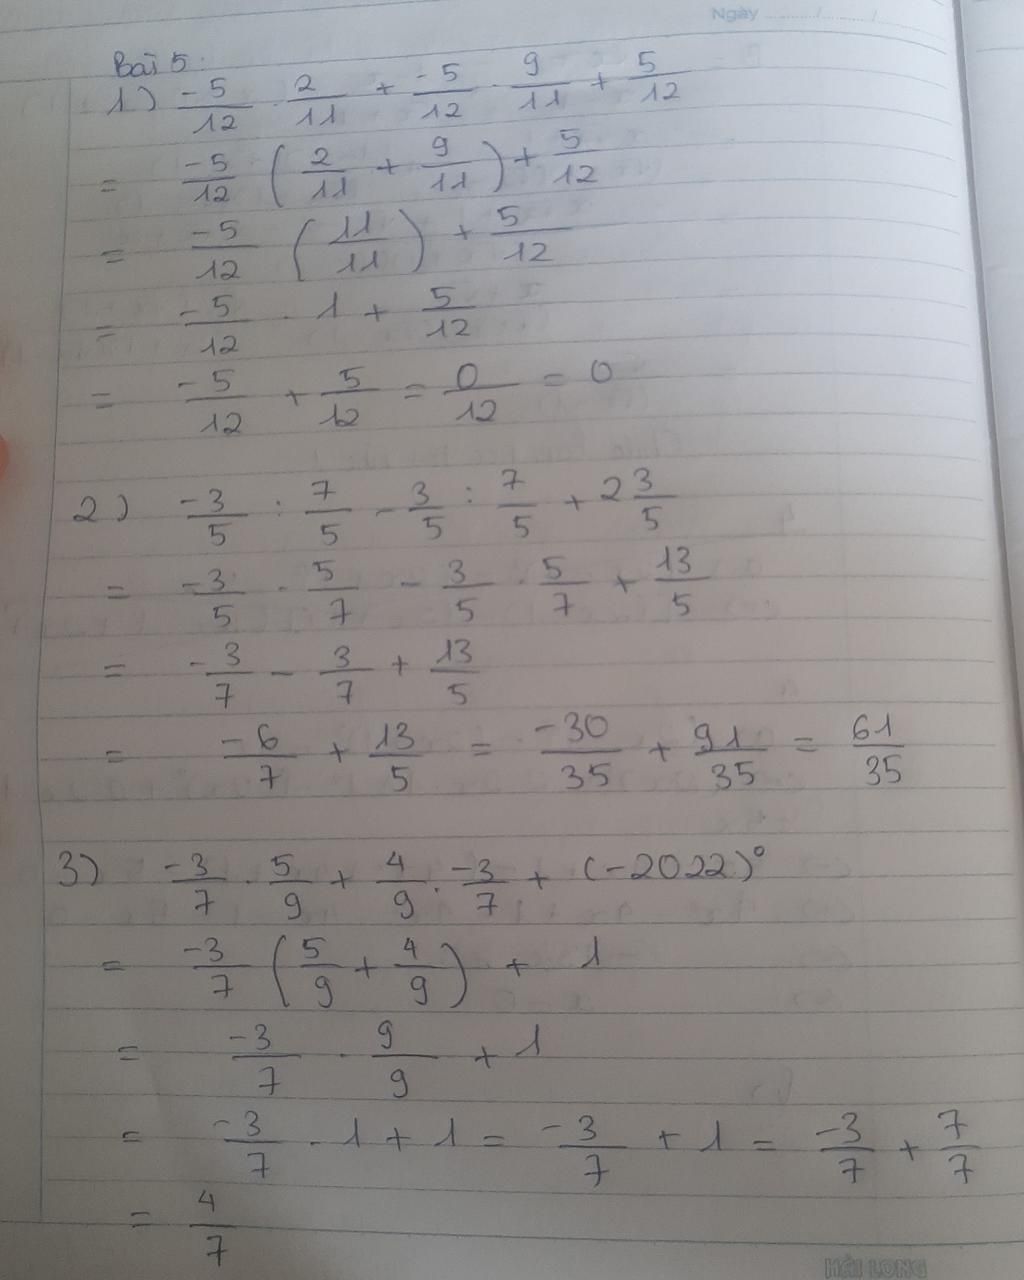 Ngày ........./........./
Bài 5.
1) -5/12 . 2/11 + -5/12 . 9/11 + 5/12
= -5/12 (2/11 + 9/11) + 5/12
= -5/12 (11/11) + 5/12
= -5/12 . 1 + 5/12
= -5/12 + 5/12 = 0/12 = 0
2) -3/5 : 7/5 - 3/5 : 7/5 + 2 3/5
= -3/5 . 5/7 - 3/5 . 5/7 + 13/5
= -3/7 - 3/7 + 13/5
= -6/7 + 13/5 = -30/35 + 91/35 = 61/35
3) -3/7 . 5/9 + 4/9 . -3/7 + (-2022)⁰
= -3/7 (5/9 + 4/9) + 1
= -3/7 . 9/9 + 1
= -3/7 . 1 + 1 = -3/7 + 1 = -3/7 + 7/7
= 4/7
HẢI LONG